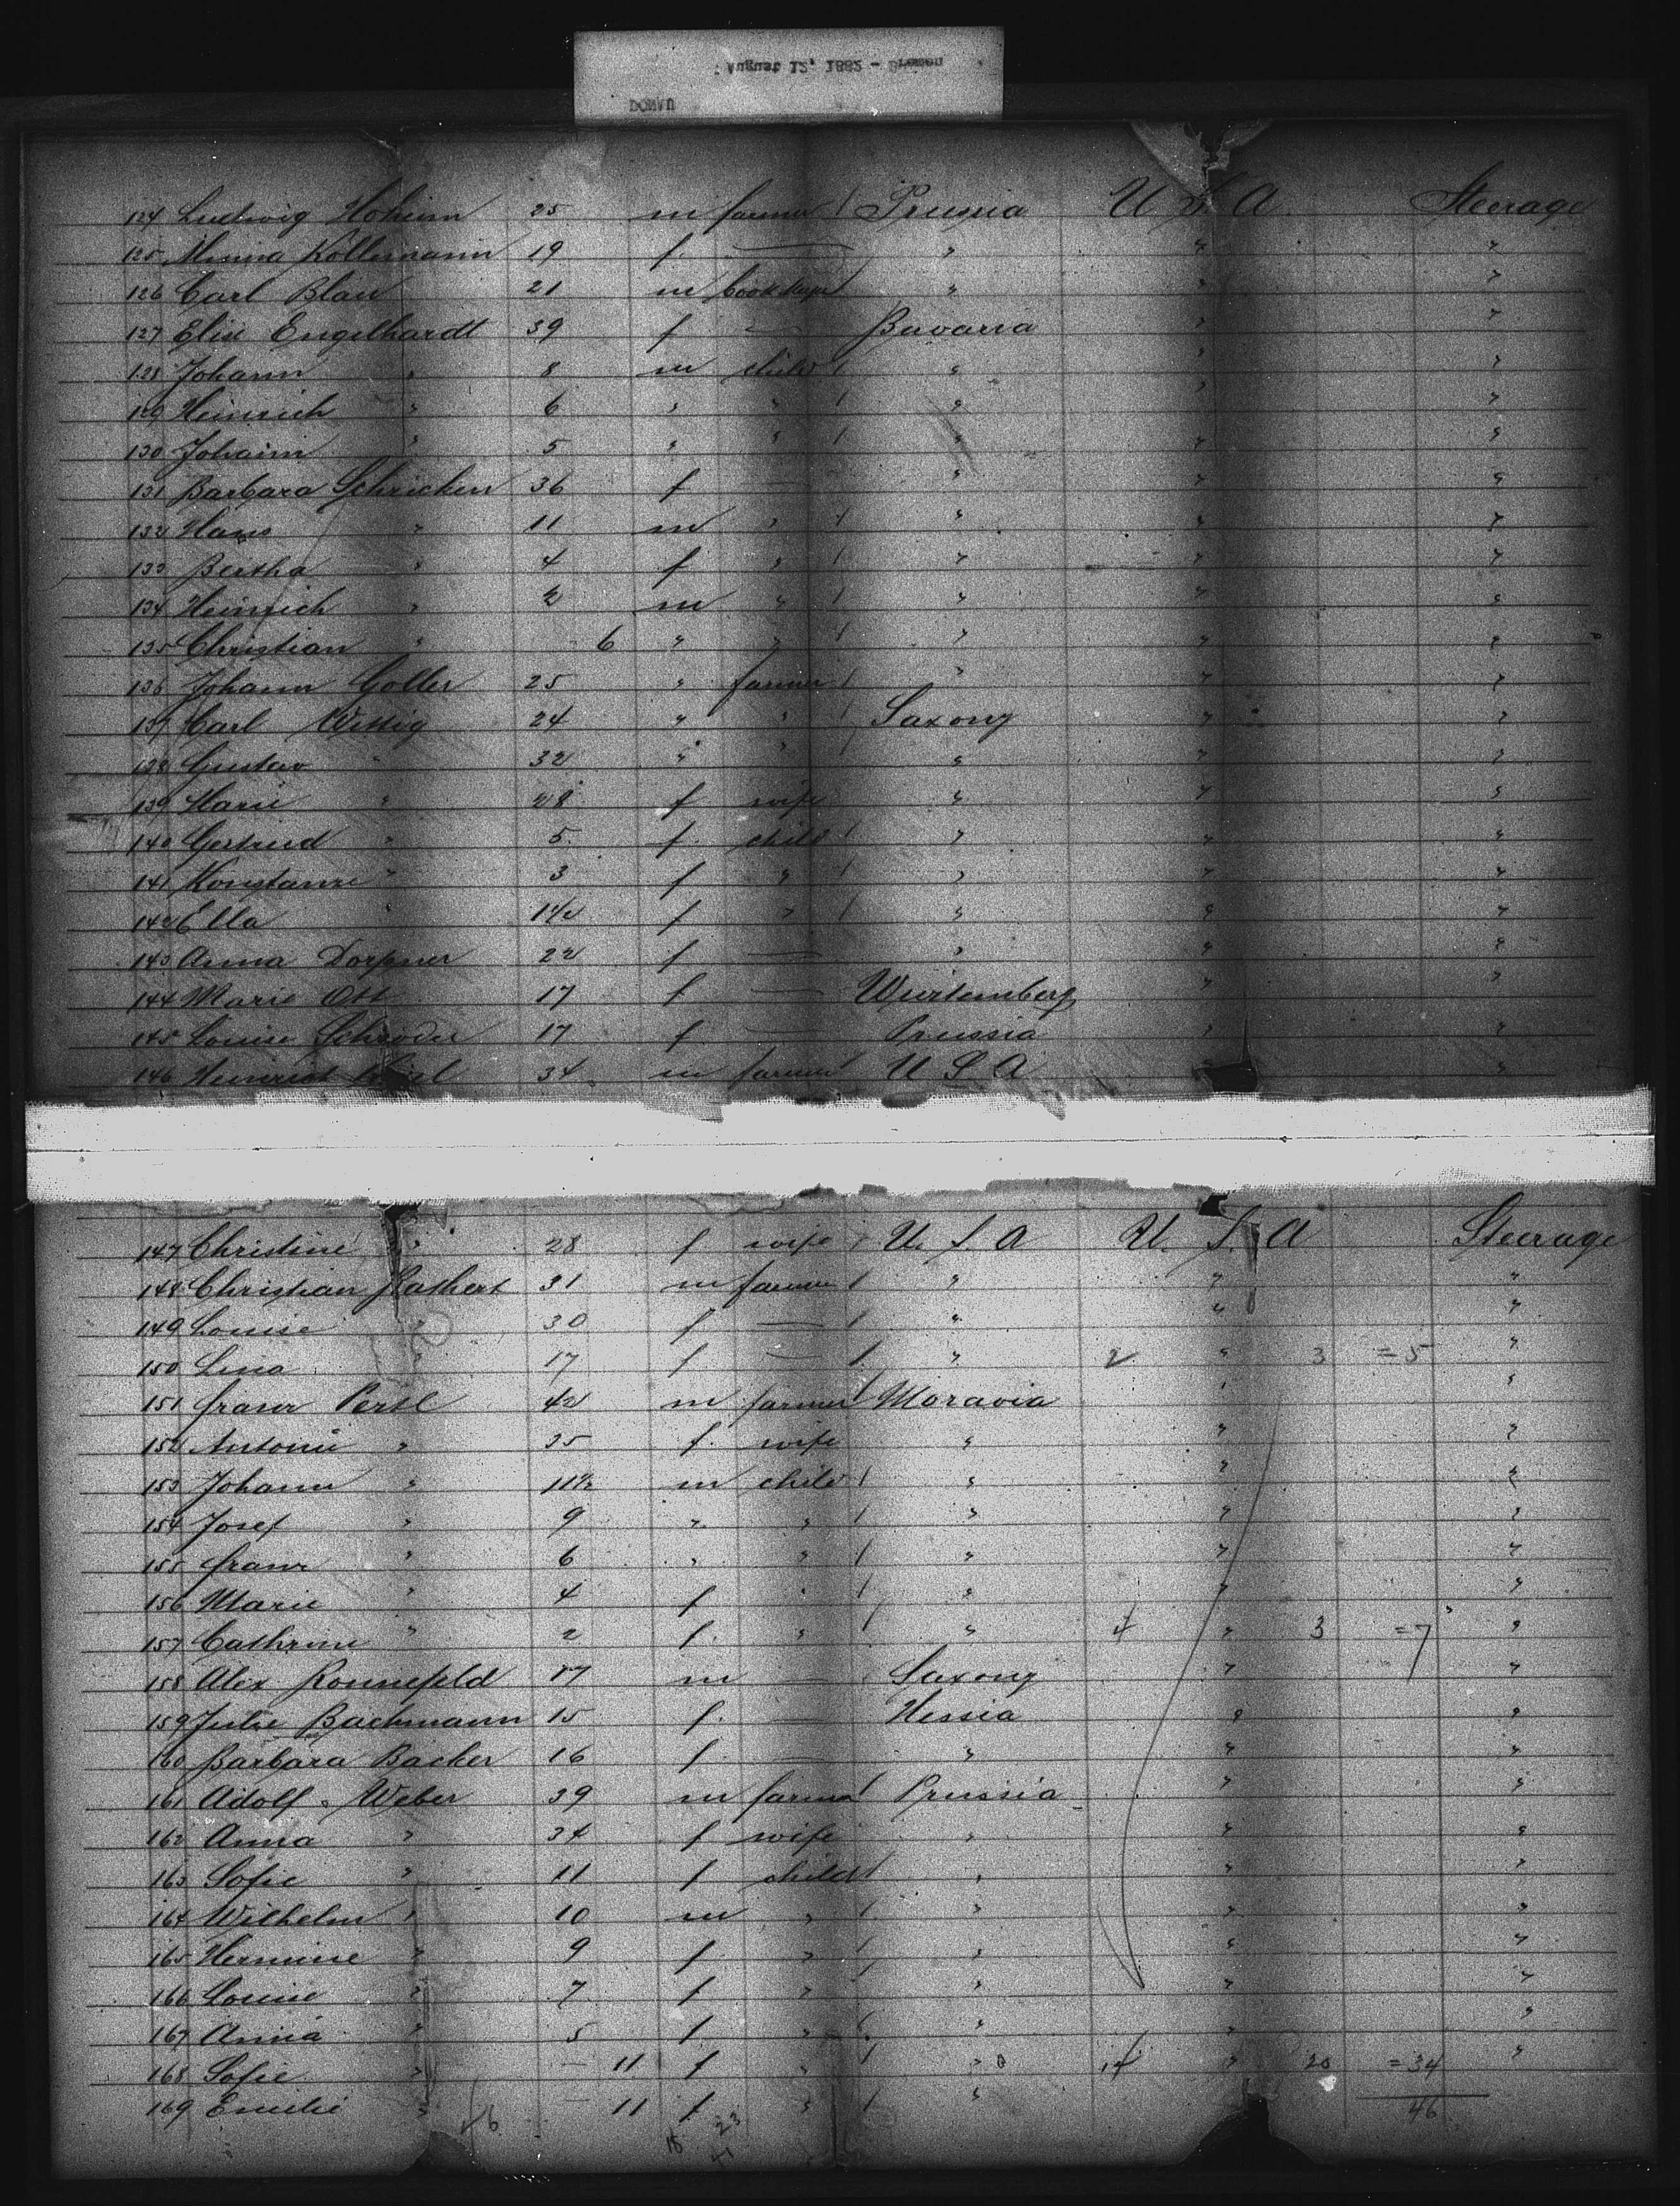 August 12, 1882 - Bremen
DONAU
124 Ludwig Hoheim 25 m farmer / Prussia U S A Steerage
125 Minna Kollemann 19 f — " " "
126 Carl Blau 21 m bookkeper / " " "
127 Elise Engelhardt 39 f — Bavaria " "
128 Johann " 8 m child / " " "
129 Heinrich " 6 " " / " " "
130 Johann " 5 " " / " " "
131 Barbara Schricken 36 f — " " "
132 Hans " 11 m " / " " "
133 Bertha " 4 f " / " " "
134 Heinrich " 2 m " / " " "
135 Christian " 6 " " / " " "
136 Johann Goller 25 " farmer / " " "
137 Carl Wettig 24 " " / Saxony " "
138 Gustav " 32 " " / " " "
139 Marie " 28 f wife " " "
140 Gertrud " 5 f. child / " " "
141 Konstanze " 3 f " / " " "
142 Ella " 1 1/2 f " / " " "
143 Anna 22 f — " " "
144 Marie Ott 17 f — Wurtemberg " "
145 Louise Schroder 17 f — Prussia " "
146 Heinrich 34 m farmer / U S A " "
147 Christine " 28 f wife / U. S. A U. S. A Steerage
148 Christian 31 m farmer / " " "
149 Louise " 30 f — / " " "
150 Lina " 17 f — / " 2 " 3 = 5 "
151 Franz Pertl 42 m farmer / Moravia " "
152 Antonie " 35 f. wife " " "
153 Johann " 11 1/2 m child / " " "
154 Josef " 9 " " / " " "
155 Franz " 6 " " / " " "
156 Marie " 4 f " / " " "
157 Cathrine " 2 f. " / " 4 " 3 = 7 "
158 Alex Ronnefeld 17 m — Saxony " "
159 Julie Bachmann 15 f. — Hessia " "
160 Barbara Backer 16 f. — " " "
161 Adolf Weber 39 m farmer / Prussia " "
162 Anna " 34 f wife " " "
163 Sofie " 11 f child / " " "
164 Wilhelm " 10 m " / " " "
165 Hermine " 9 f. " / " " "
166 Louise " 7 f " " " "
167 Anna " 5 f. " / " " "
168 Sofie " — 11 f " / " 14 " 20 = 34 "
169 Emilie " — 11 f " / " 46
46 18 23
41